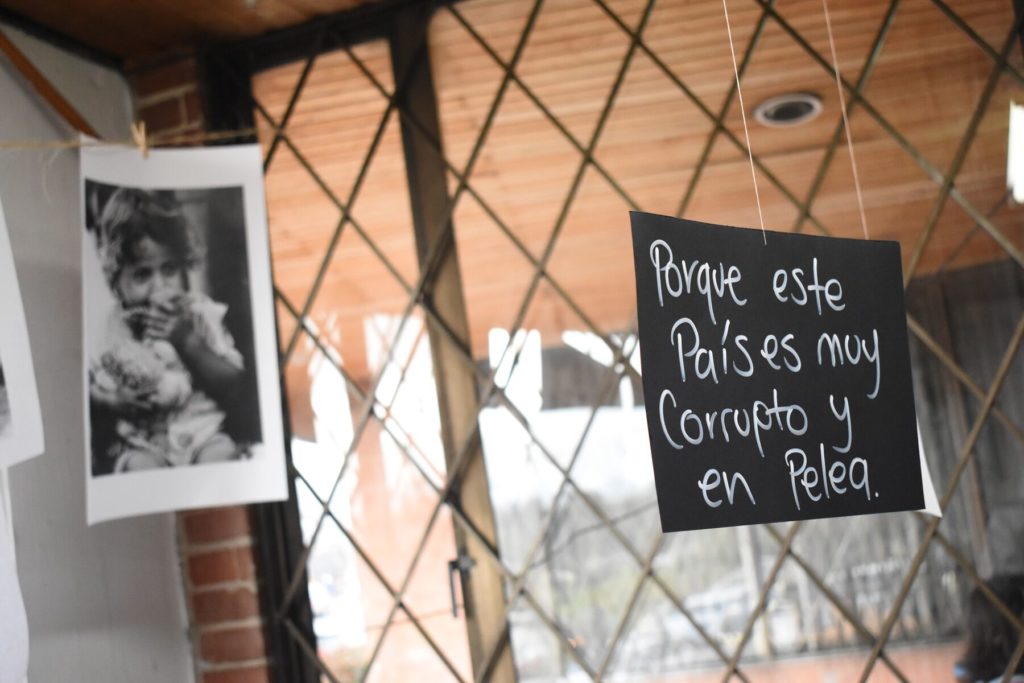 Porque este
País es muy
Corrupto y
en Pelea.